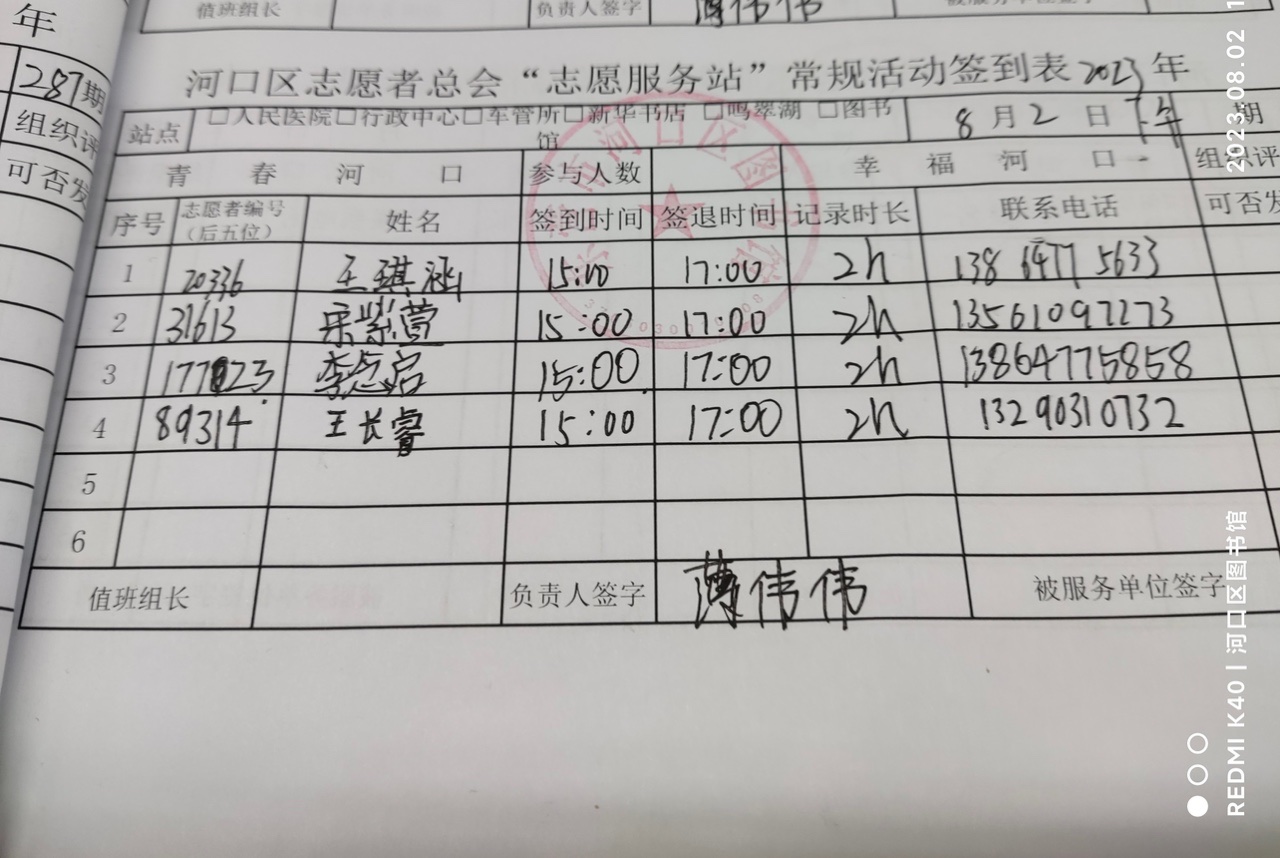 年
287期
组织评
可否发
值班组长
负责人签字
薄伟伟
河口区志愿者总会“志愿服务站”常规活动签到表2023年
站点 □人民医院□行政中心□车管所□新华书店 □鸣翠湖 □图书馆 8月2日下午 期
青春河口 参与人数 幸福河口 组织评
序号 志愿者编号（后五位） 姓名 签到时间 签退时间 记录时长 联系电话 可否发
1 20336 王琪涵 15:00 17:00 2h 138 6477 5633
2 31613 宋紫萱 15:00 17:00 2h 13561097273
3 177123 李启 15:00 17:00 2h 13864775858
4 89314 王长睿 15:00 17:00 2h 13290310732
5
6
值班组长 负责人签字 薄伟伟 被服务单位签字
河口区图
2023.08.02 1
REDMI K40 | 河口区图书馆